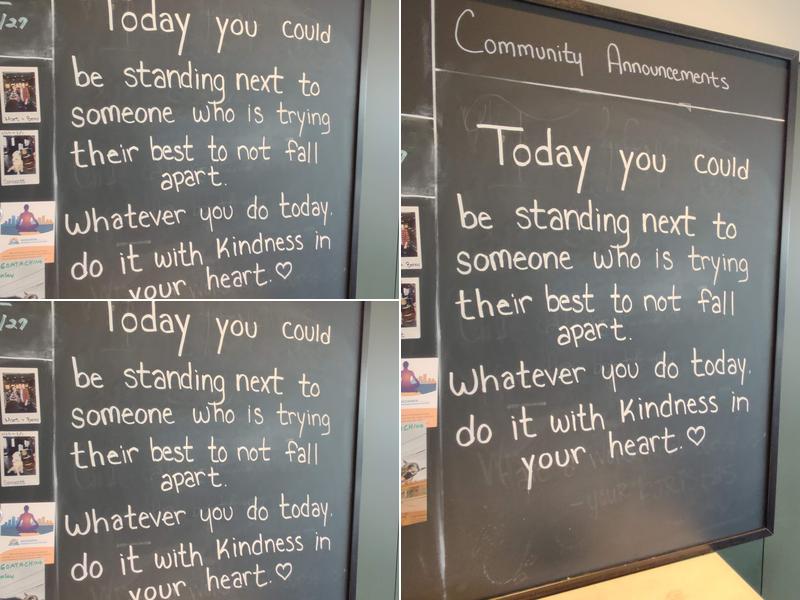 /27
Today you could
be standing next to
someone who is trying
their best to not fall
apart.
Whatever you do today.
do it with kindness in
your heart.♡
/27
Today you could
be standing next to
someone who is trying
their best to not fall
apart.
Whatever you do today.
do it with kindness in
your heart.♡
Community Announcements
Today you could
be standing next to
someone who is trying
their best to not fall
apart.
Whatever you do today.
do it with kindness in
your heart.♡